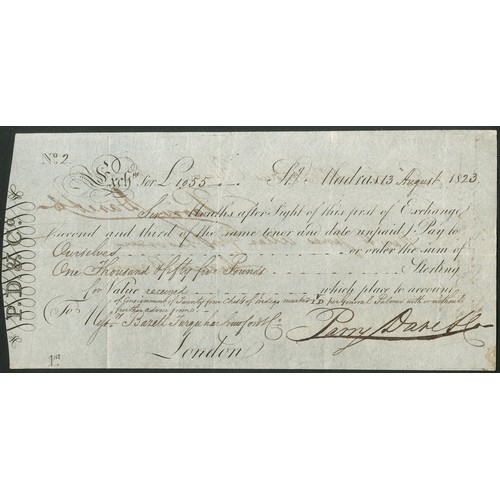 No. 2
Exch. for £ 1055 Stg. Madras 13 August 1823
Months after Sight of this first of Exchange
second and third of the same tenor and date unpaid) Pay to
Ourselves or order the sum of
One Thousand & fifty five Pounds Sterling
for Value received which place to account
of consignment of Twenty four chests of Indigo marked per General Palmer with or without
further advice from
To Messrs.
London
Parry Dare & Co
1st
P. D. & Co.